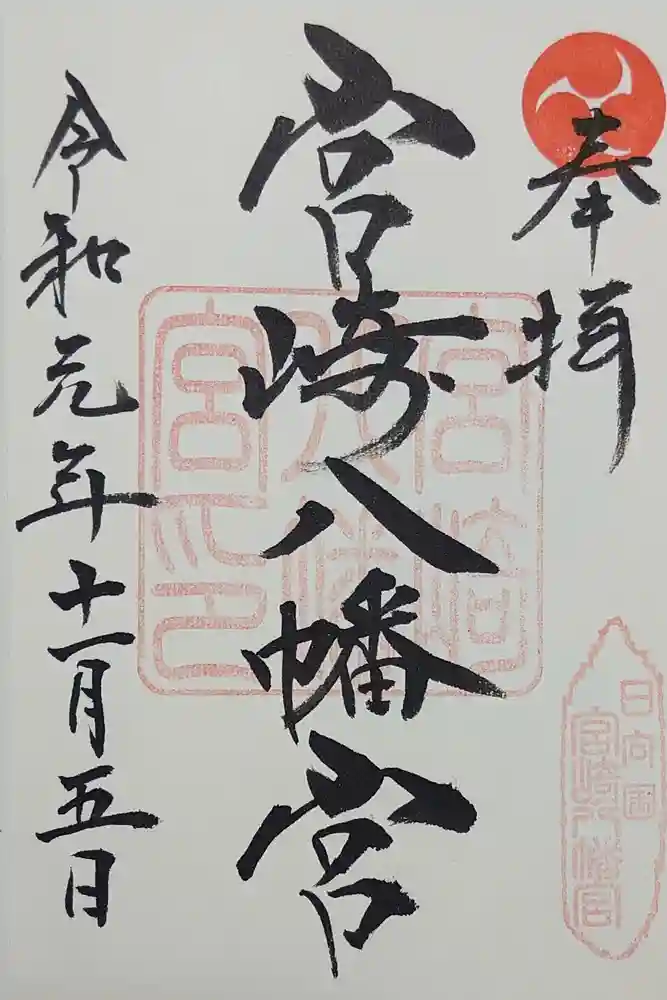 奉拝
宮崎八幡宮
令和元年十一月五日
宮崎八幡宮之印
日向国
宮崎八幡宮